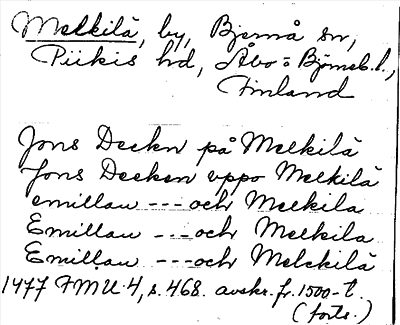 Melkilä, by, Bjernå sn,
Piikis hd, Åbo o Björneb. l.,
Finland
Jons Deekn på Melkilä
Jons Deeken vppo Melkilä
emillan --- och Melkila
Emillan --- och Melkila
Emillan --- och Melckilä
1477 FMU 4, s. 468. avskr. fr. 1500-t.
(forts.)